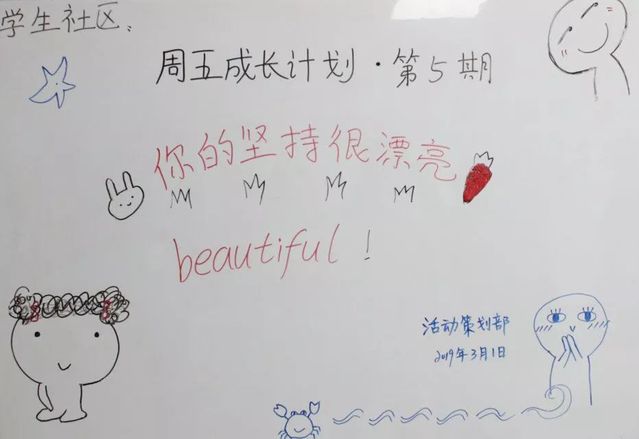 学生社区：
周五成长计划·第5期
你的坚持很漂亮
beautiful！
活动策划部
2019年3月1日